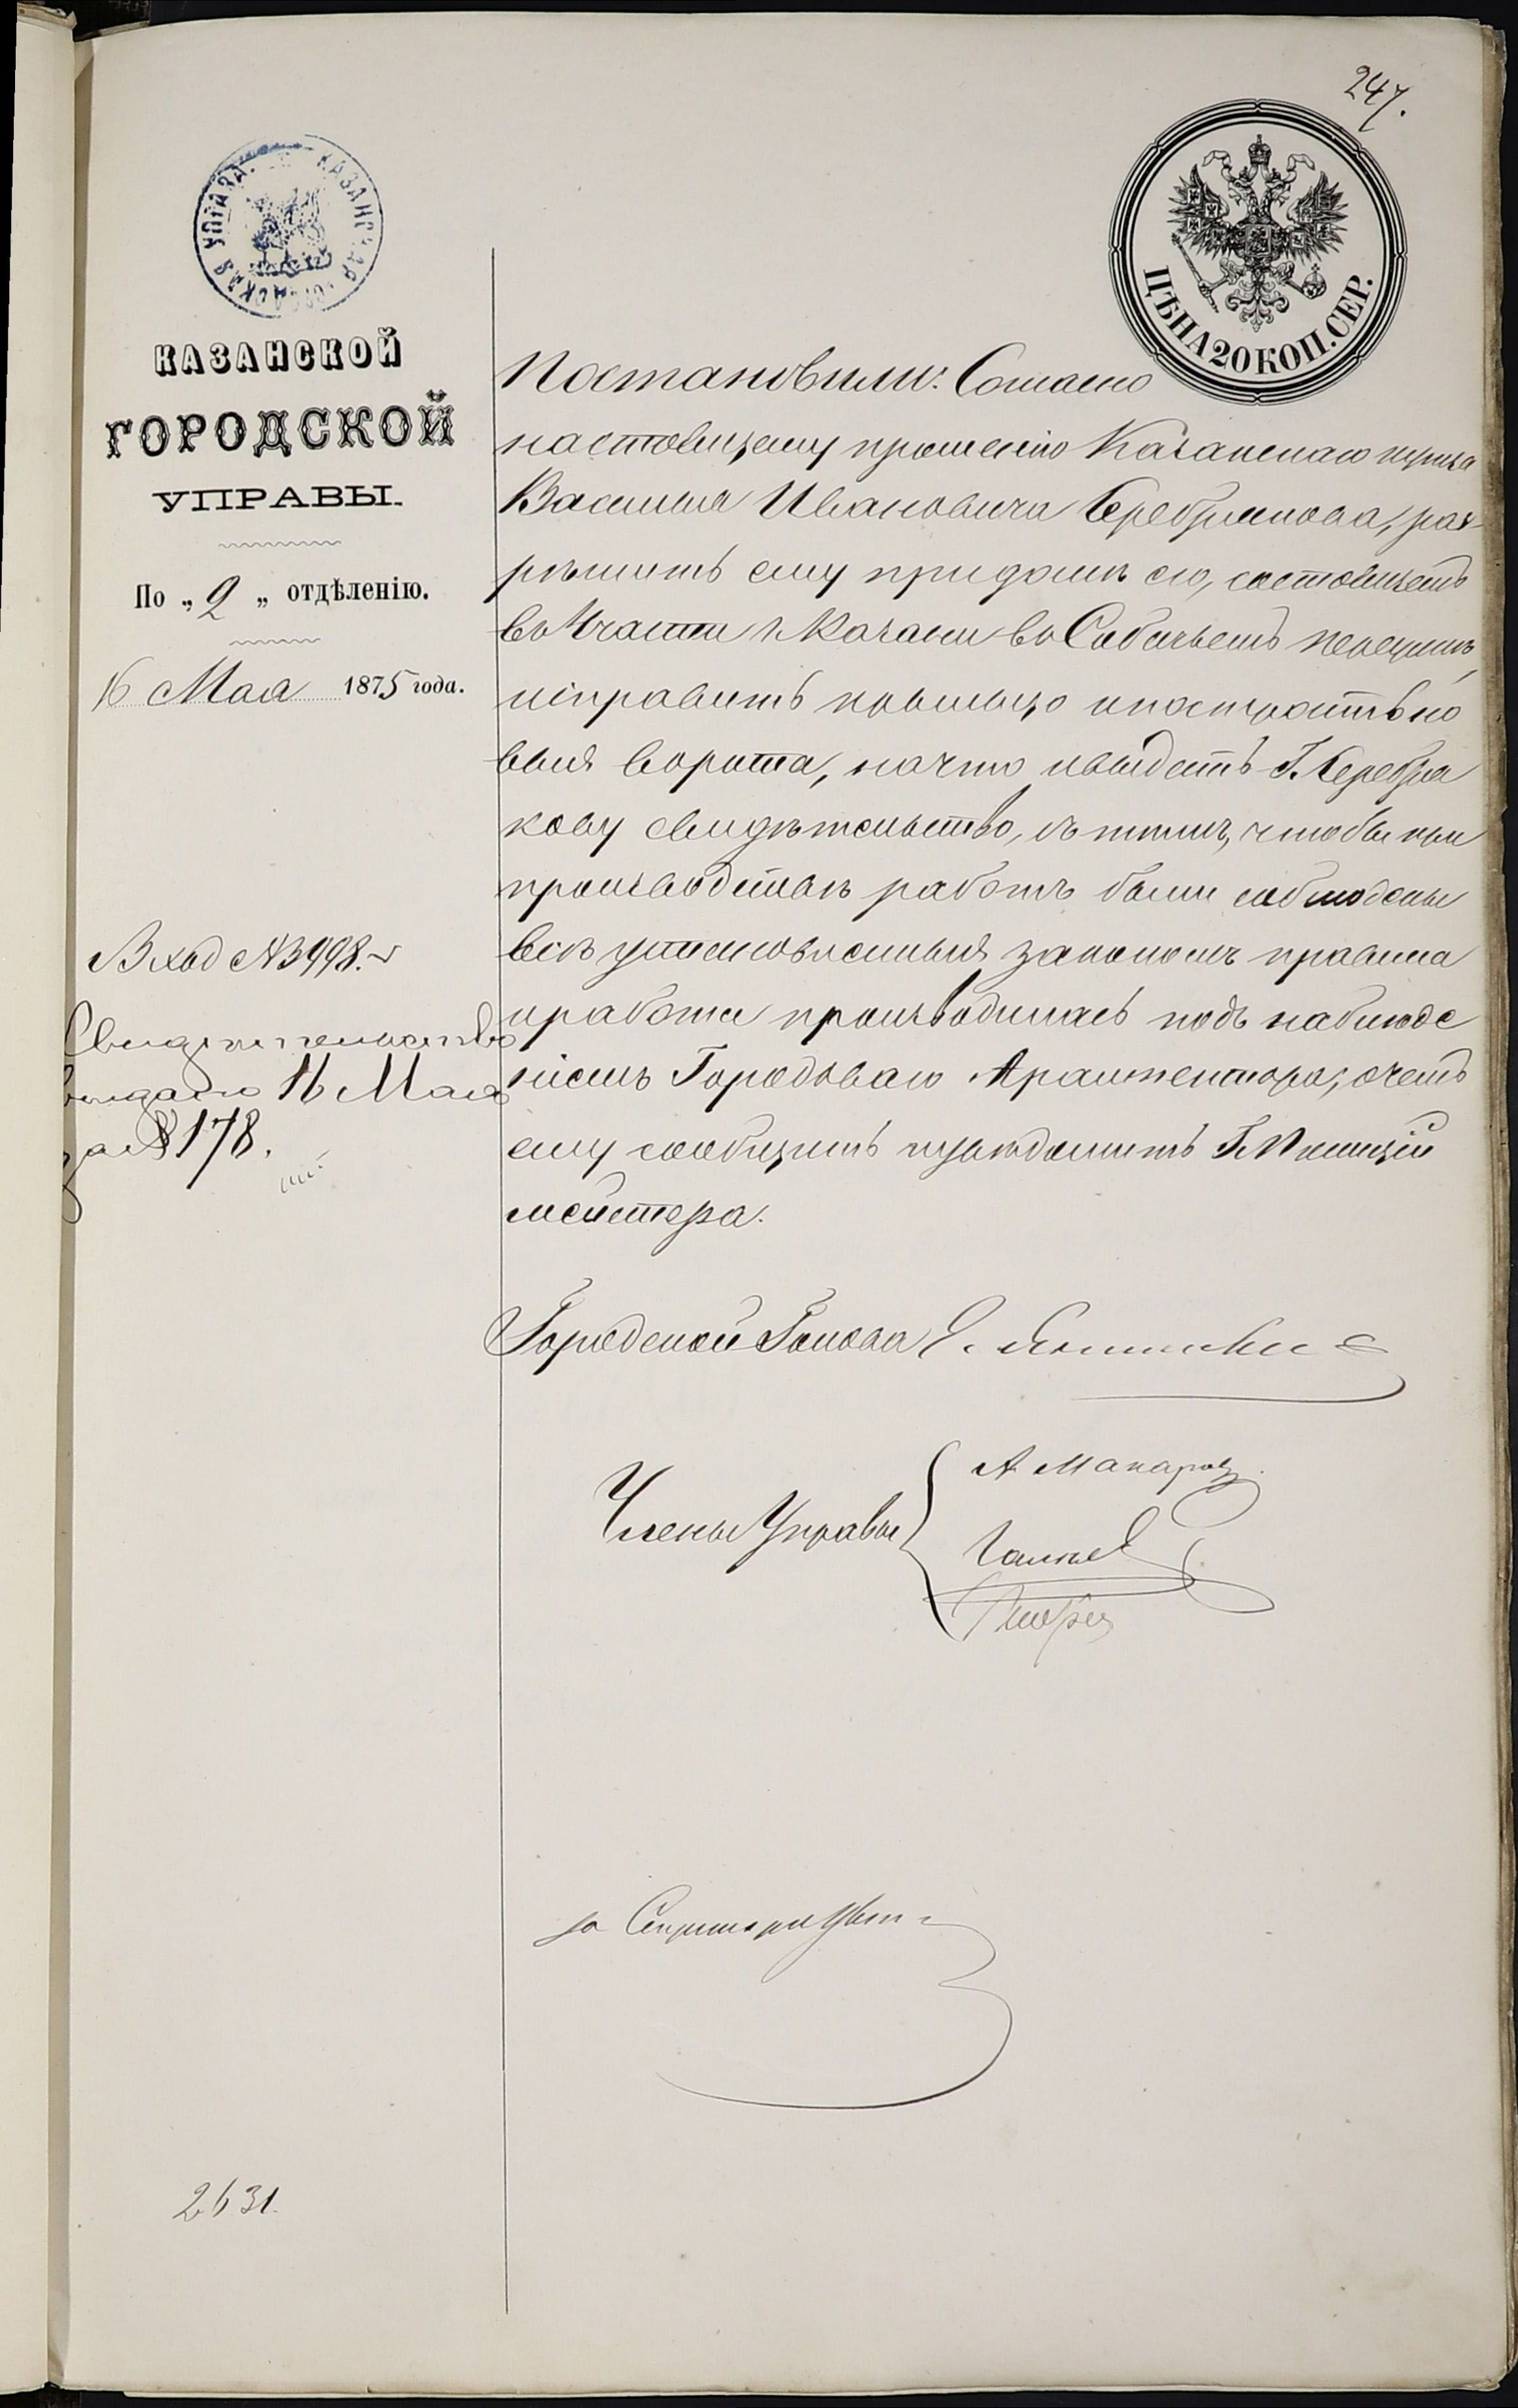 247.
КАЗАНСКАЯ ГОРОДСКАЯ УПРАВА.
ЦѢНА 20 КОП. СЕР.
КАЗАНСКОЙ
ГОРОДСКОЙ
УПРАВЫ.
По „ 2 „ отдѣленію.
16 Мая 1875 года.
Вход № 3998.
Свидѣтельство
выдано 16 Мая
за № 178.
2631.
Постановили: Согласно
настоящему прошенію Казанскаго купца
Василья Ивановича Серебрякова, раз-
рѣшить ему при домѣ его, состоящемъ
въ части г. Казани въ Собачьемъ переулкѣ,
исправить крыльцо и построить но
выя ворота, на что и выдать Г. Серебря
кову свидѣтельство, съ тѣмъ, чтобы при
производствѣ работъ были соблюдены
всѣ установленныя закономъ правила
и работа производилась подъ наблюде
ніемъ Городоваго Архитектора, о чемъ
ему сообщить и увѣдомить Г. Полицій
мейстера.
Городской Голова Е.
Члены Управы
А Макаровъ
за Секретаря